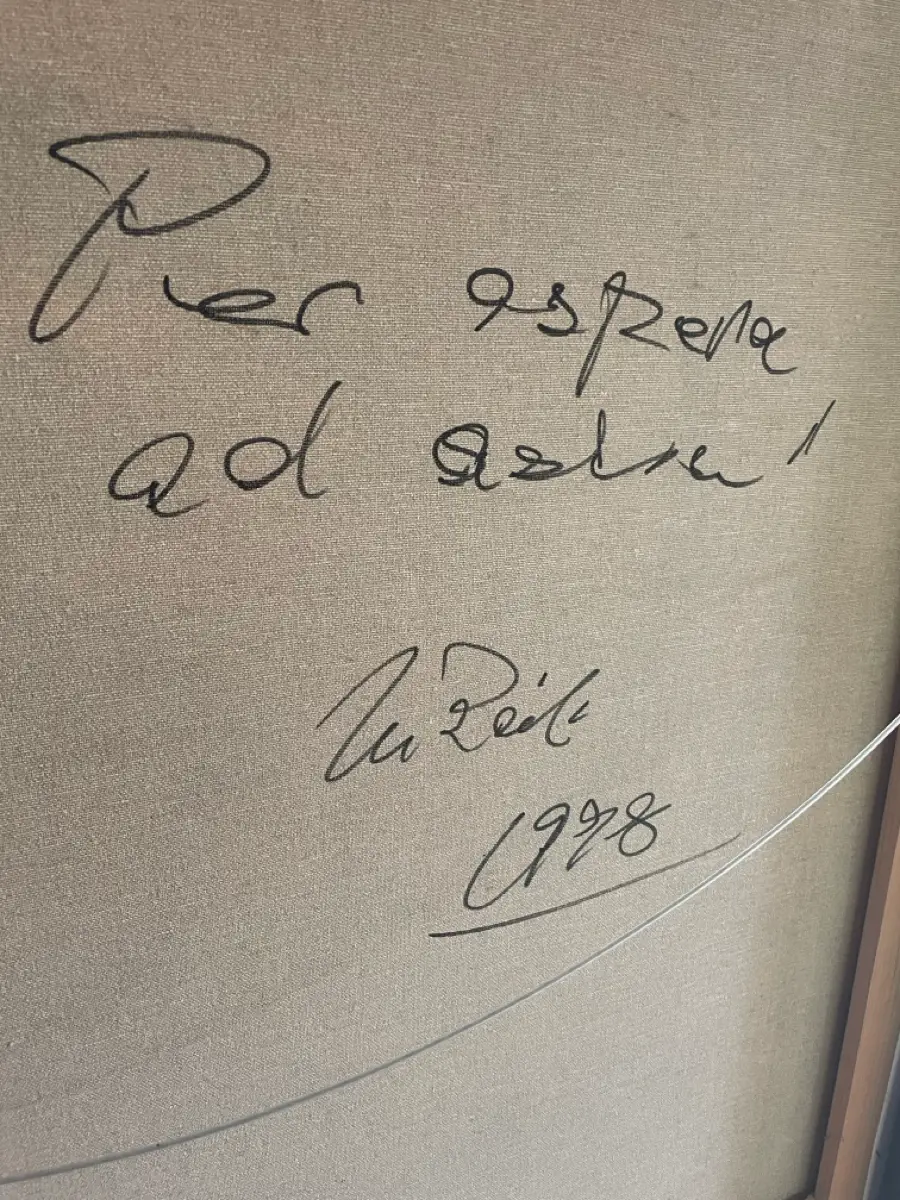 Per aspera
ad astra!
1978